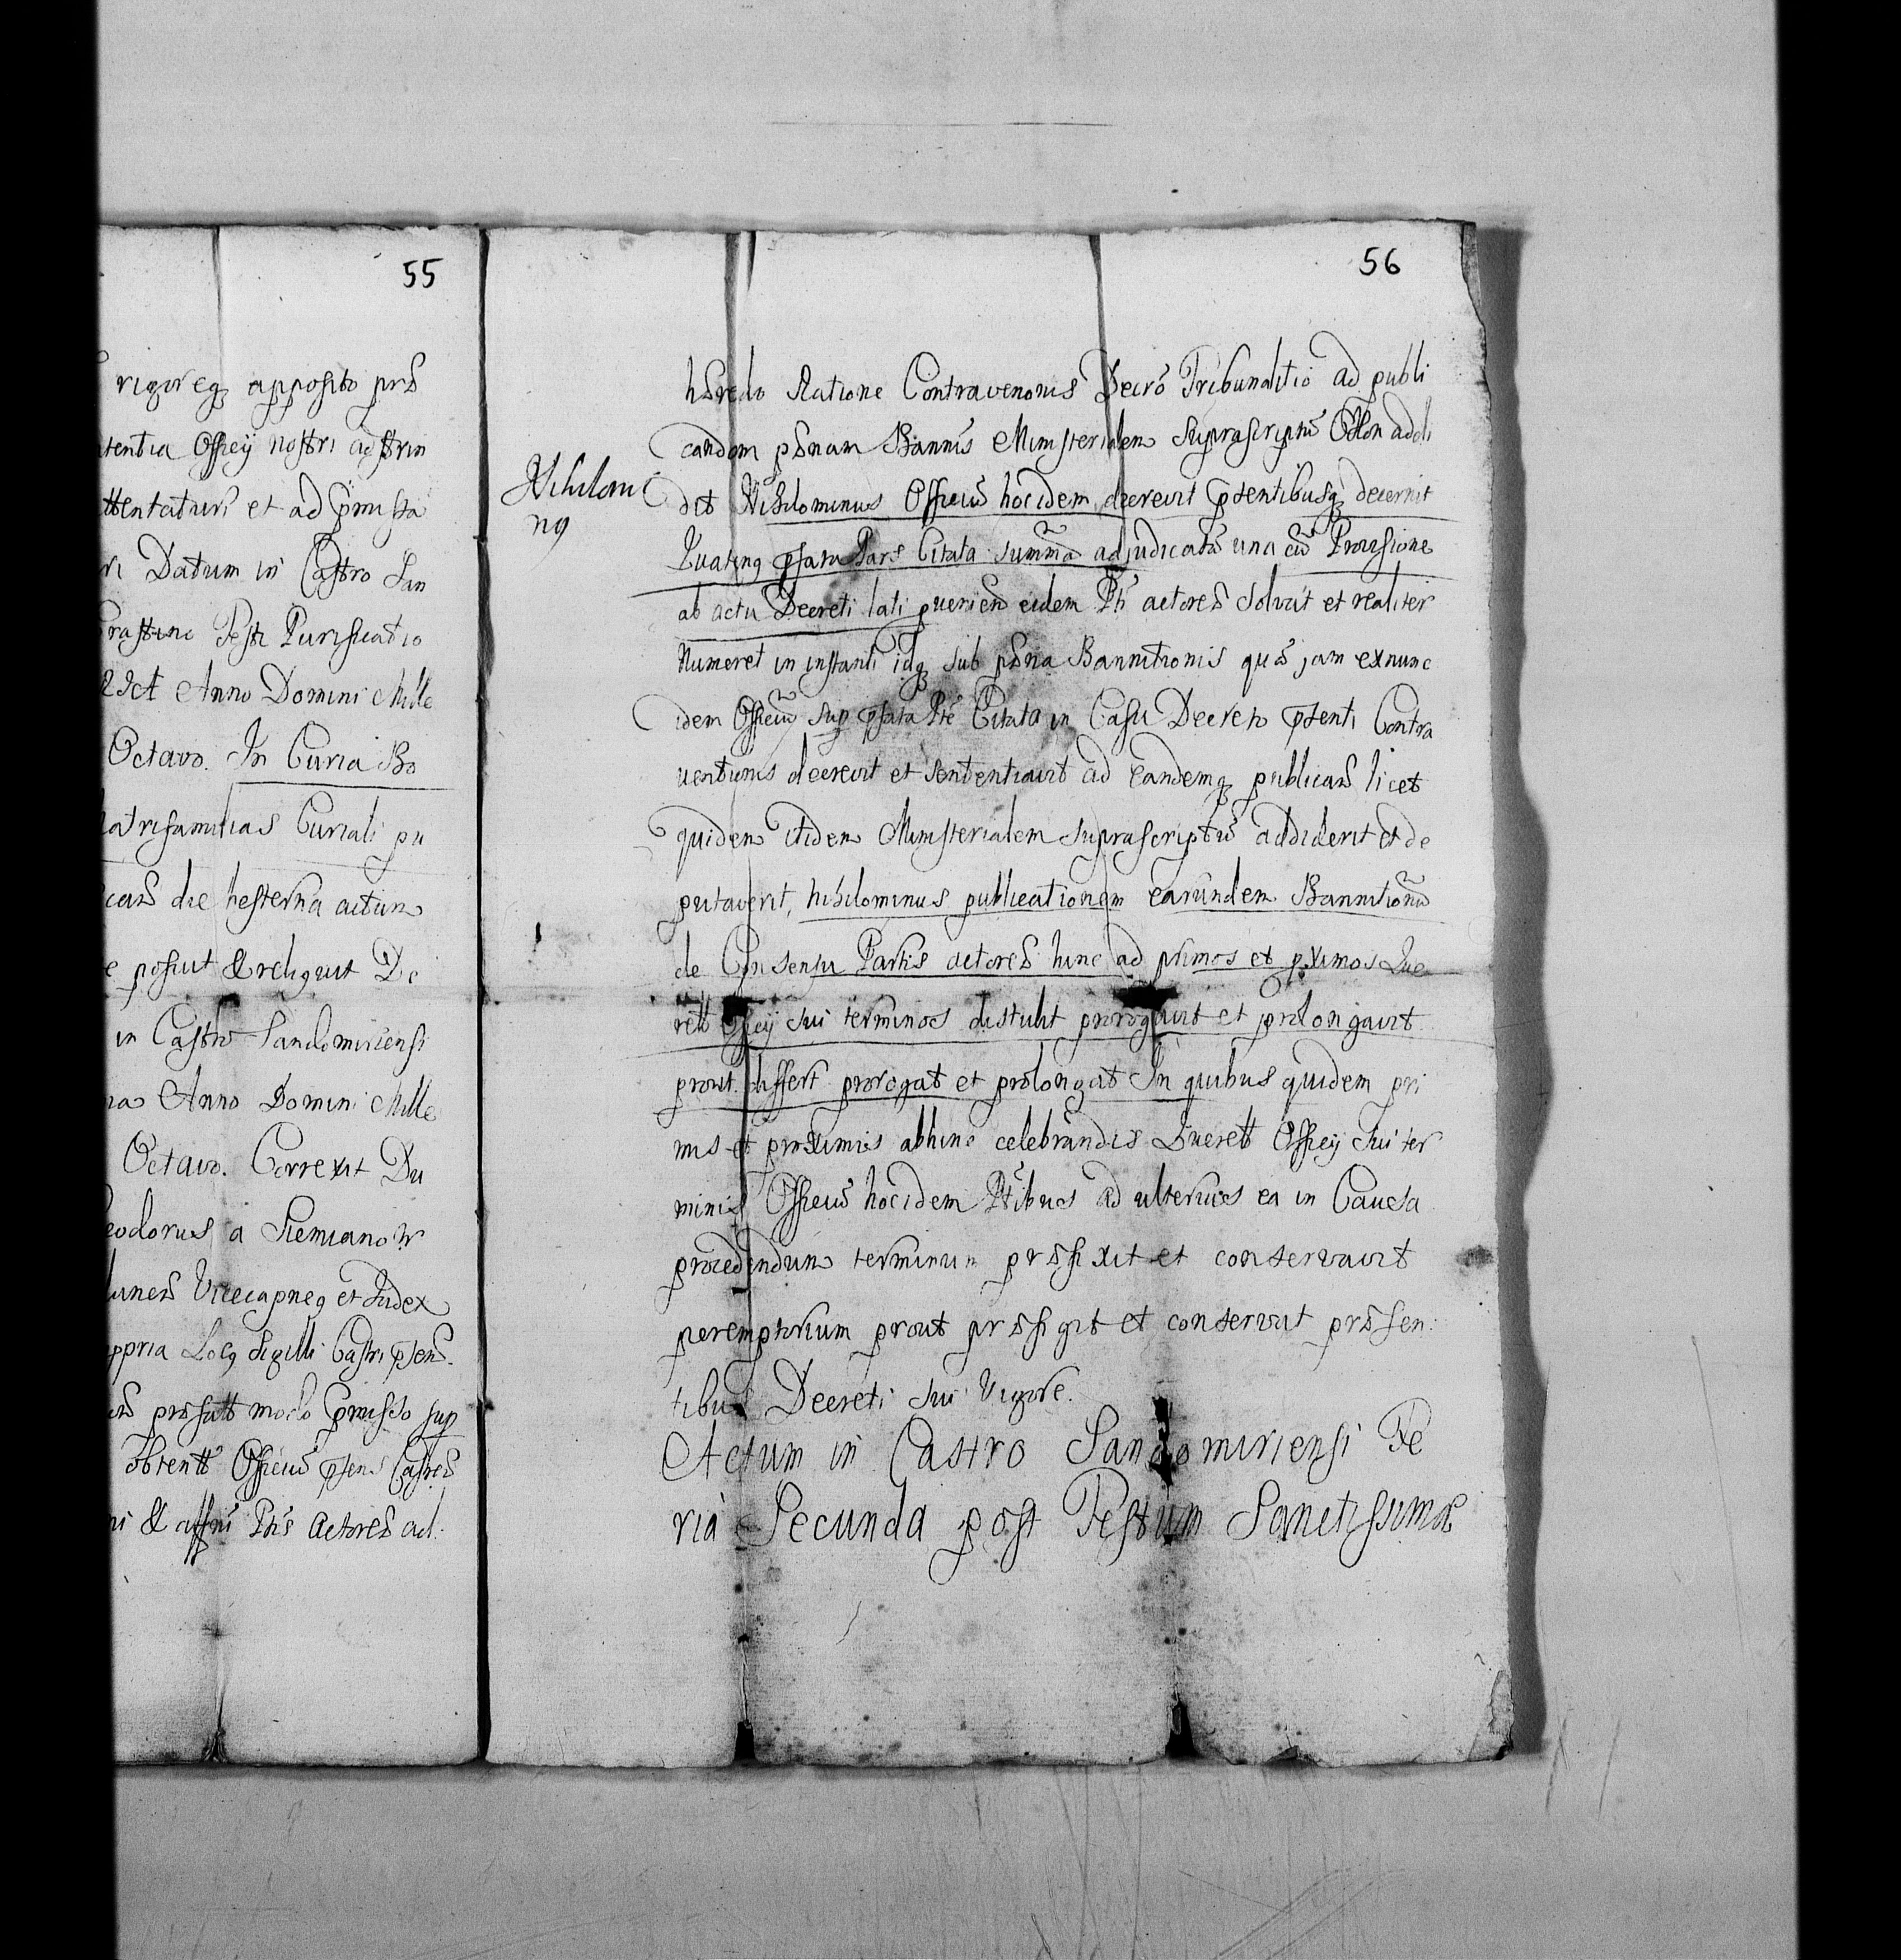 55
rigoreq apposito prs
tentia Officij nostri adstrin
ttentaturi et ad pmissa
ri Datum in Castro San
Crastino Festi Purificatio
Anno Domini Mille
Octavo. In Curia Bo
Patrisfamilias Curiali pu
die hesterna actum
posuit & reliquit De
in Castro Sandomiriensi
Anno Domini Mille
Octavo. Correxit Du
eodorus a Siemianow
Vicecapneq et Judex
ppria Locq Sigilli Castri psens.
modo pmisso sup
obtentt Officiu psens Castren
& affni Ptis Actores ad
56
Nihilomi
nq
Ratione Contravenonis Decro Tribunalitio ad publi
candam psnam Bannis Ministerialem Suprascriptu Offo addi
dit Nihilominus Officiu hocidem decrevit psentibusq decernit
Quatenq psata Pars Citata summa adjudicata una cu Provisione
ab actu Decreti lati eidem Pti actores solvat et realiter
Numeret in instanti idq sub psna Bannitionis qua jam exnunc
idem Officiu sup psata Pte Citata in Casu Decreto psenti Contra
ventionis decrevit et sententiavit ad Eandemq publicans licet
quidem itidem Ministerialem suprascriptu addiderit et de
putaverit, nihilominus publicationem earundem Bannitionu
de Consensu Partis actores hinc ad primos et pximos Que
rell Officij sui terminos distulit prorogavit et prolongavit
prout differt prorogat et prolongat In quibus quidem pri
mis et proximis abhinc celebrandis Querell Officij Sui ter
minis Officiu hocidem Ptibus ad ulterius ea in Causa
procedendum terminum prsfixit et conservavit
peremptorium prout prsfigit et conservat prssen:
tibus Decreti sui Vigore.
Actum in Castro Sandomiriensi Fe
ria Secunda post Festum Sanctissimæ